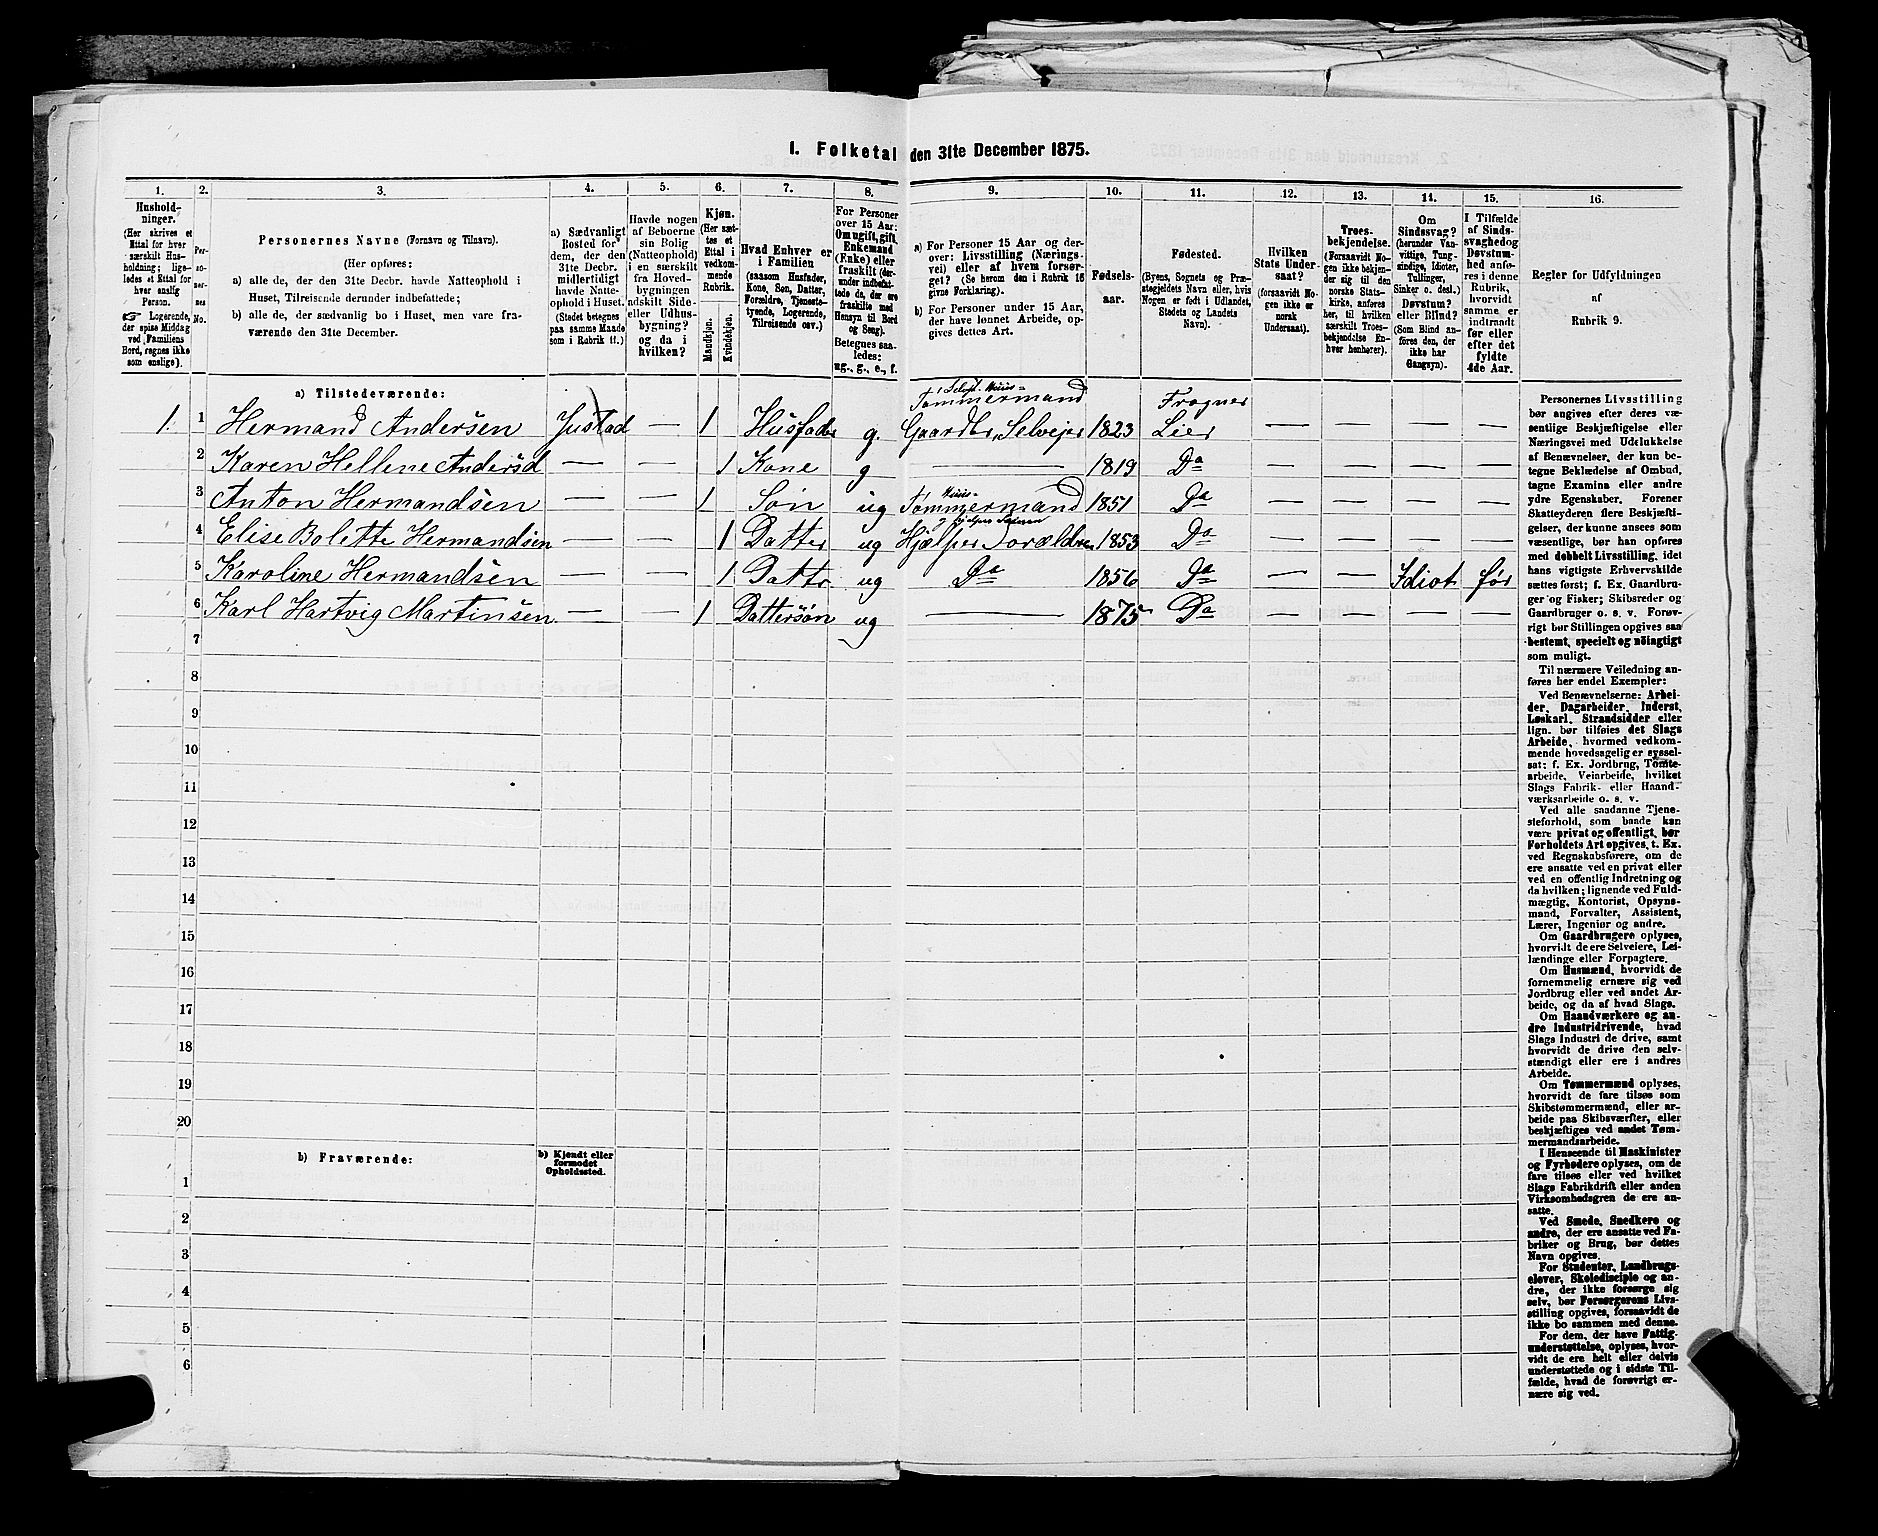 1. Folketal den 31te December 1875.
1. 2. 3. 4. 5. 6. 7. 8. 9. 10. 11. 12. 13. 14. 15. 16.
Hushold-
ninger.
(Her skrives et
Ettal for hver
særskilt Hus-
holdning; lige-
ledes et Ettal for
hver enslig
Person.
☞ Logerende,
der spise Middag
ved Familiens
Bord, regnes ikke
som enslige).
Per-
so-
ner-
nes
No.
Personernes Navne (Fornavn og Tilnavn).
(Her opføres:
a) alle de, der den 31te Decbr. havde Natteophold i
Huset, Tilreisende derunder indbefattede;
b) alle de, der sædvanlig bo i Huset, men vare fra-
værende den 31te December.
a) Sædvanligt
Bosted for
dem, der den
31te Decbr.
midlertidigt
havde Natte-
ophold i Huset.
(Stedet betegnes
paa samme Maade
som i Rubrik 11.)
Havde nogen
af Beboerne
sin Bolig
(Natteophold)
i en særskilt
fra Hoved-
bygningen
adskilt Side-
eller Udhus-
bygning?
og da i
hvilken?
Kjøn.
(Her sæt-
tes et
Ettal i
vedkom-
mende
Rubrik.
Mandkjøn. Kvindekjøn.
Hvad Enhver er
i Familien
(saasom Husfader,
Kone, Søn, Datter,
Forældre, Tjeneste-
tyende, Logerende,
Tilreisende osv.)
For Personer
over 15 Aar:
Om ugift, gift,
Enkemand
(Enke) eller
fraskilt (der-
under indbefat-
tede de, der ere
fraskilte med
Hensyn til Bord
og Seng).
Betegnes saa-
ledes:
ug., g., e., f.
a) For Personer 15 Aar og der-
over: Livsstilling (Nærings-
vei) eller af hvem forsør-
get? (Se herom den i Rubrik 16
givne Forklaring).
b) For Personer under 15 Aar,
der have lønnet Arbeide, op-
gives dettes Art.
Fødsels-
aar.
Fødested.
(Byens, Sognets og Præ-
stegjeldets Navn eller, hvis
Nogen er født i Udlandet,
Stedets og Landets
Navn).
Hvilken
Stats Under-
saat?
(forsaavidt No-
gen ikke er
norsk
Undersaat).
Troes-
bekjendelse.
(Forsaavidt No-
gen ikke bekjen-
der sig til den
norske Stats-
kirke, anføres
her, til hvilken
særskilt Troes-
bekjendelse En-
hver henhører).
Om
Sindssvag?
(herunder Van-
vittige, Tung-
sindige, Idioter,
Tullinger,
Sinker o. desl.)
Døvstum?
eller Blind?
(Som Blind an-
føres den, der
ikke har
Gangsyn).
I Tilfælde
af Sinds-
svaghed og
Døvstum-
hed anfø-
res i denne
Rubrik,
hvorvidt
samme er
indtraadt
før eller
efter det
fyldte
4de Aar.
Regler for Udfyldningen
af
Rubrik 9.
a) Tilstedeværende:
Selvst. Huus-
Tømmermand Frogner
1. 1 Hermand Andersen Justad — 1 Husfader g. Gaardbr, Selveier 1823 Lier — — — —
2 Karen Hellene Andersd — — 1 Kone g — 1819 Do — — — —
3 Anton Hermandsen — — 1 Søn ug Huus- Tømmermand 1851 Do — — — —
4 Elise Bolette Hermandsen — — 1 Datter ug Hjælper Forældre 1853 Do — — — —
5 Karoline Hermandsen — — 1 Dattr ug Do 1856 Do — — Idiot før
6 Karl Hartvig Martinsen — — 1 Dattersøn ug — 1875 Do — — — —
7
8
9
10
11
12
13
14
15
16
17
18
19
20
b) Fraværende:
b) Kjendt eller
formodet
Opholdssted.
1
2
3
4
5
6
Personernes Livsstilling
bør angives efter deres væ-
sentlige Beskjæftigelse eller
Næringsvei med Udelukkelse
af Benævnelser, der kun be-
tegne Beklædelse af Ombud,
tagne Examina eller andre
ydre Egenskaber. Forener
Skatteyderen flere Beskjæfti-
gelser, der kunne ansees som
væsentlige, bør han opføres
med dobbelt Livsstilling, idet
hans vigtigste Erhvervskilde
sættes først; f. Ex. Gaardbru-
ger og Fisker; Skibsreder og
Gaardbruger o. s. v. Forøv-
rigt bør Stillingen opgives saa
bestemt, specielt og nöiagtigt
som muligt.
Til nærmere Veiledning an-
føres her endel Exempler:
Ved Benævnelserne: Arbei-
der, Dagarbeider, Inderst,
Løskarl, Strandsidder eller
lign. bør tilføies det Slags
Arbeide, hvormed vedkom-
mende hovedsagelig er syssel-
sat; f. Ex. Jordbrug, Tomte-
arbeide, Veiarbeide, hvilket
Slags Fabrik- eller Haand-
værksarbeide o. s. v.
Ved alle saadanne Tjene-
steforhold, som baade kan
være privat og offentligt, bør
Forholdets Art opgives, t. Ex.
ved Regnskabsførere, om de
ere ansatte ved en privat eller
ved en offentlig Indretning og
da hvilken; lignende ved Fuld-
mægtig, Kontorist, Opsyns-
mand, Forvalter, Assistent,
Lærer, Ingeniør og andre.
Om Gaardbrugere oplyses,
hvorvidt de ere Selveiere, Lei-
lændinge eller Forpagtere.
Om Husmænd, hvorvidt de
fornemmelig ernære sig ved
Jordbrug eller ved andet Ar-
beide, og da af hvad Slags.
Om Haandværkere og an-
dre Industridrivende, hvad
Slags Industri de drive, samt
hvorvidt de drive den selv-
stændigt eller ere i andres
Arbeide.
Om Tømmermænd oplyses,
hvorvidt de fare tilsøs som
Skibstømmermænd, eller ar-
beide paa Skibsværfter, eller
beskjæftiges ved andet Tøm-
mermandsarbeide.
I Henseende til Maskinister
og Fyrbødere oplyses, om de
fare tilsøs eller ved hvilket
Slags Fabrikdrift eller anden
Virksomhedsgren de ere an-
satte.
Ved Smede, Snedkere og
andre, der ere ansatte ved Fa-
briker og Brug, bør dettes
Navn opgives.
For Studenter, Landbrugs-
elever, Skoledisciple og an-
dre, der ikke forsørge sig
selv, bør Forsørgerens Livs-
stilling opgives, forsaavidt de
ikke bo sammen med denne.
For dem, der have Fattig-
understøttelse, oplyses, hvor-
vidt de ere helt eller delvis
understøttede og i sidste Til-
fælde, hvad de forøvrigt er-
nære sig ved.